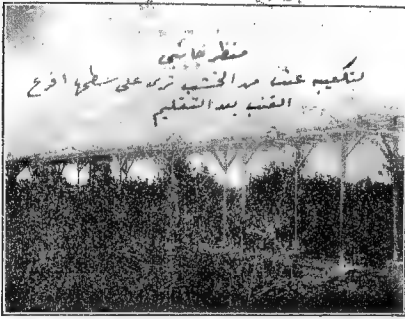 منظر جانبي
لتكعيب عنب من الخشب ترى على سطحها افرع
العنب بعد التقليم